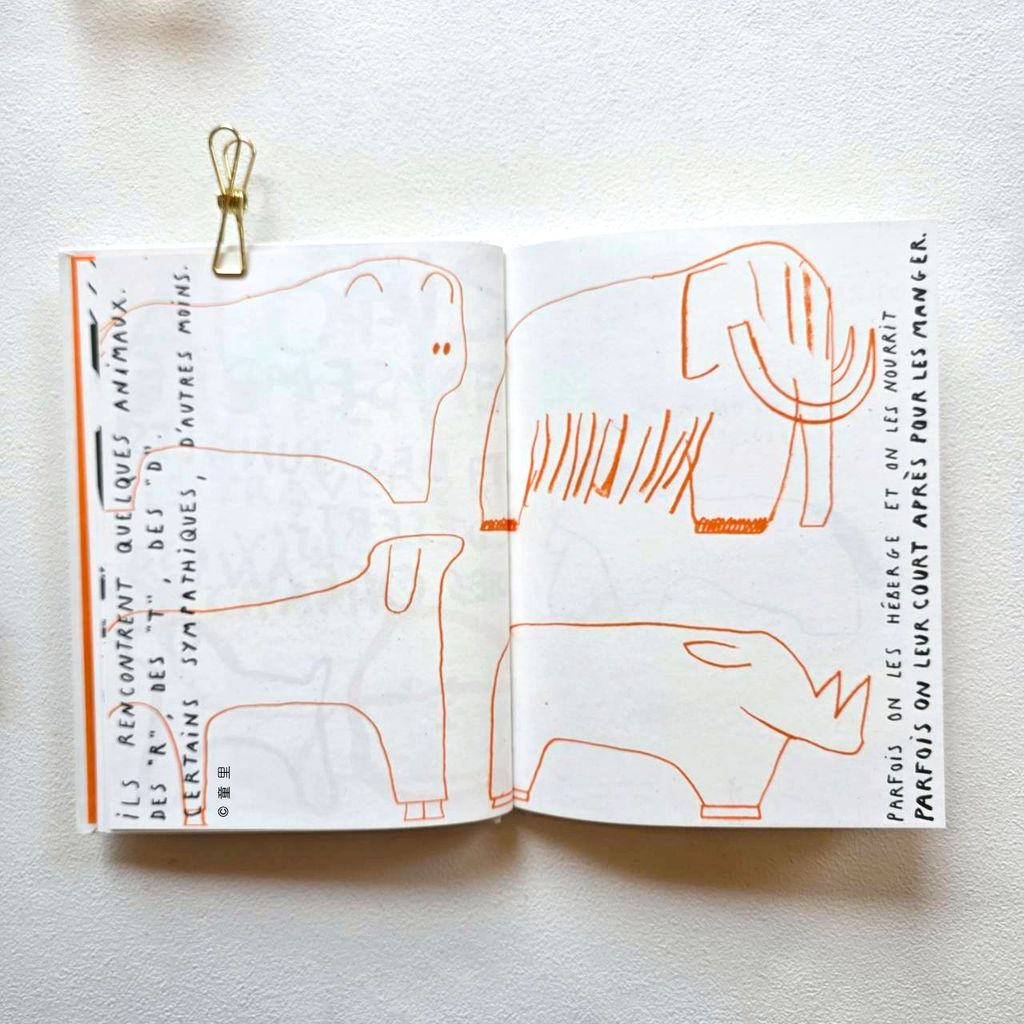 ILS RENCONTRENT QUELQUES ANIMAUX.
DES "R", DES "T", DES "D".
CERTAINS SYMPATHIQUES, D'AUTRES MOINS.
© 童里
PARFOIS ON LES HÉBERGE ET ON LES NOURRIT
PARFOIS ON LEUR COURT APRÈS POUR LES MANGER.